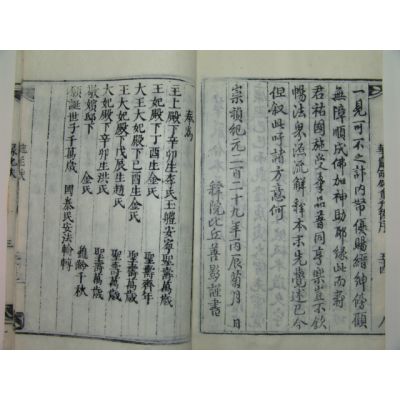 一見可不之計內帑優賜縉紳俙願
無障順成佛加神助耶緣此而壽
君祐國施受羣品普同享樂豈不欽
暢法衆流解本示先覺述已今
但叙此呼諸方意何
崇禎紀元二百二十九年丙辰菊月 日
院比丘善影謹書
奉為
主上殿下辛卯生李氏玉體安寧 聖壽萬歲
王妃殿下丁酉生金氏 聖壽齊年
大王大妃殿下己酉生金氏 聖壽萬歲
王大妃殿下戊辰生趙氏 聖壽萬歲
大妃殿下辛卯生洪氏 聖壽萬歲
嬪邸下 金氏 齡千秋
願誕世子千萬歲 國泰民安法輪轉